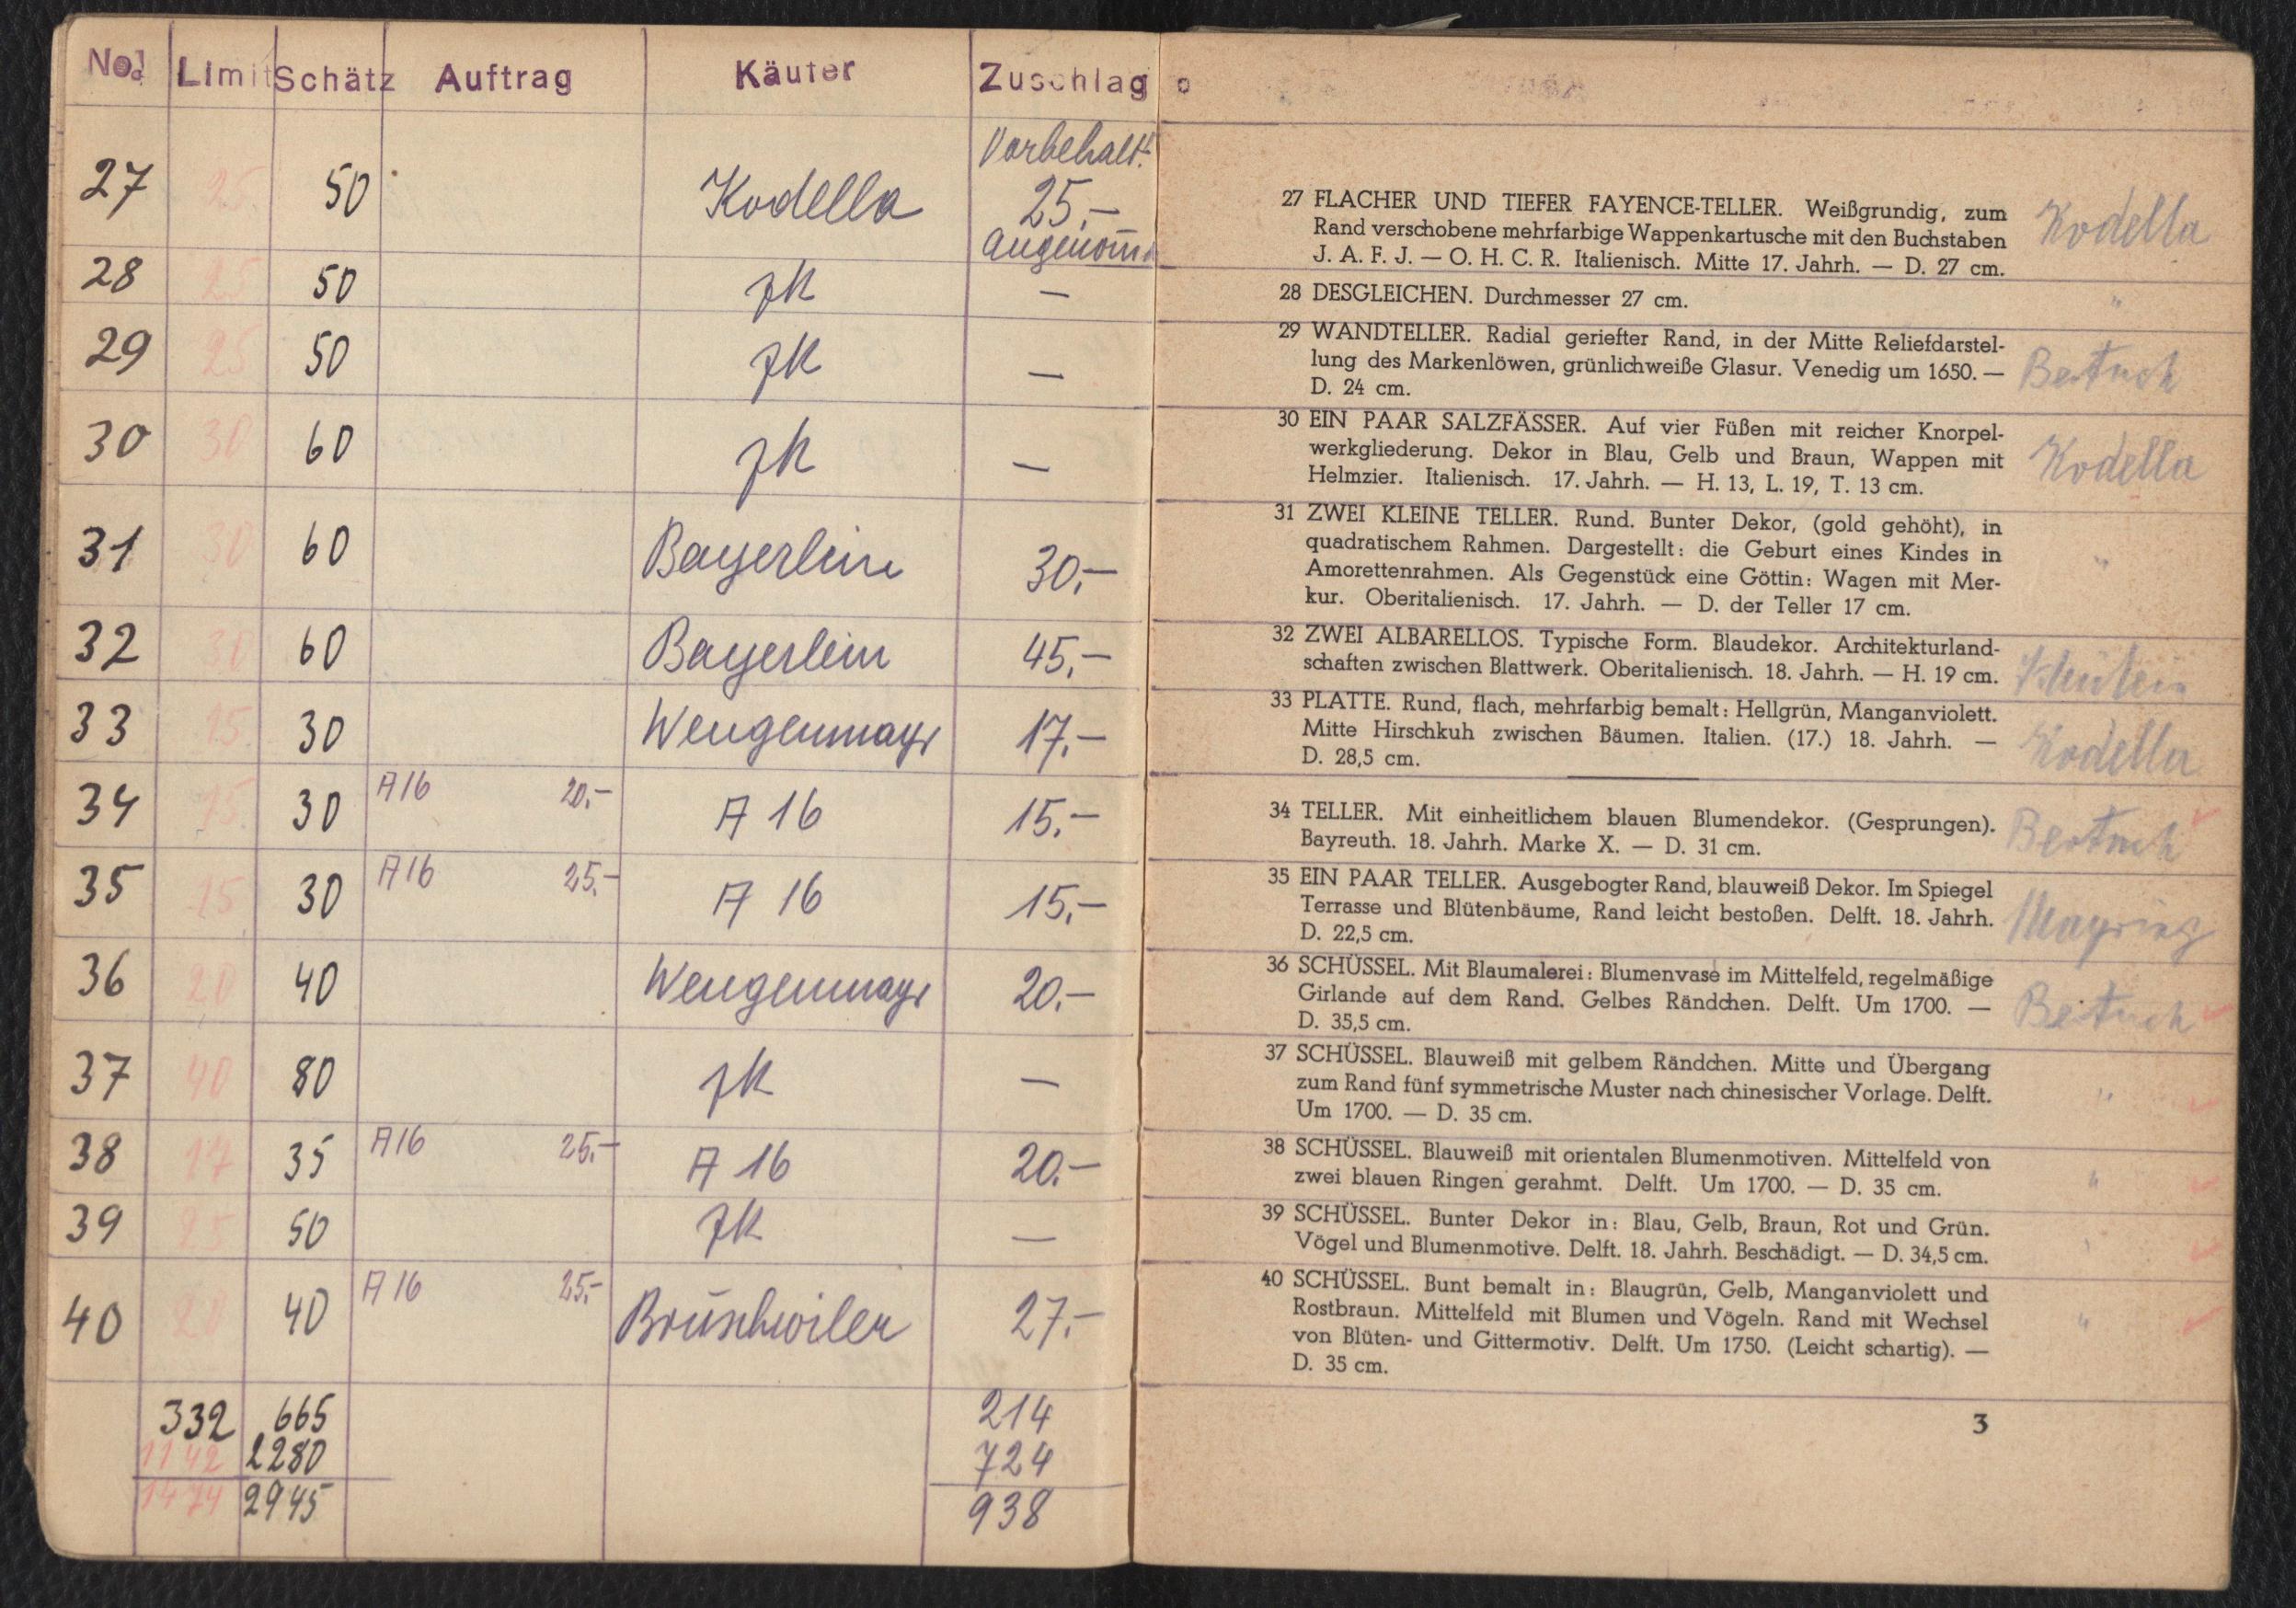 No. Limit Schätz Auftrag Käufer Zuschlag
Vorbehalt
27 25. 50 Kodella 25.-
angenom̄
28 25 50 —
29 25 50 —
30 30 60 —
31 30 60 Bayerlein 30.-
32 30 60 Bayerlein 45.-
33 15. 30 Wengenmayr 17.-
34 15. 30 A16 20.- A 16 15.-
35 15 30 A16 25.- A 16 15.-
36 20 40 Wengenmayr 20.-
37 40 80 —
38 17 35 A16 25.- A 16 20.-
39 25 50 —
40 20 40 A16 25.- Brüschwiler 27.-
332 665 214
1142 2280 724
1474 2945 938
27 FLACHER UND TIEFER FAYENCE-TELLER. Weißgrundig, zum
Rand verschobene mehrfarbige Wappenkartusche mit den Buchstaben
J. A. F. J. — O. H. C. R. Italienisch. Mitte 17. Jahrh. — D. 27 cm.
Kodella
28 DESGLEICHEN. Durchmesser 27 cm. "
29 WANDTELLER. Radial geriefter Rand, in der Mitte Reliefdarstel-
lung des Markenlöwen, grünlichweiße Glasur. Venedig um 1650. —
D. 24 cm.
Bertuch
30 EIN PAAR SALZFÄSSER. Auf vier Füßen mit reicher Knorpel-
werkgliederung. Dekor in Blau, Gelb und Braun, Wappen mit
Helmzier. Italienisch. 17. Jahrh. — H. 13, L. 19, T. 13 cm.
Kodella
31 ZWEI KLEINE TELLER. Rund. Bunter Dekor, (gold gehöht), in
quadratischem Rahmen. Dargestellt: die Geburt eines Kindes in
Amorettenrahmen. Als Gegenstück eine Göttin: Wagen mit Mer-
kur. Oberitalienisch. 17. Jahrh. — D. der Teller 17 cm.
"
32 ZWEI ALBARELLOS. Typische Form. Blaudekor. Architekturland-
schaften zwischen Blattwerk. Oberitalienisch. 18. Jahrh. — H. 19 cm.
33 PLATTE. Rund, flach, mehrfarbig bemalt: Hellgrün, Manganviolett.
Mitte Hirschkuh zwischen Bäumen. Italien. (17.) 18. Jahrh. —
D. 28,5 cm.
Kodella
34 TELLER. Mit einheitlichem blauen Blumendekor. (Gesprungen).
Bayreuth. 18. Jahrh. Marke X. — D. 31 cm.
Bertuch
35 EIN PAAR TELLER. Ausgebogter Rand, blauweiß Dekor. Im Spiegel
Terrasse und Blütenbäume, Rand leicht bestoßen. Delft. 18. Jahrh.
D. 22,5 cm.
Mayring
36 SCHÜSSEL. Mit Blaumalerei: Blumenvase im Mittelfeld, regelmäßige
Girlande auf dem Rand. Gelbes Rändchen. Delft. Um 1700. —
D. 35,5 cm.
Bertuch
37 SCHÜSSEL. Blauweiß mit gelbem Rändchen. Mitte und Übergang
zum Rand fünf symmetrische Muster nach chinesischer Vorlage. Delft.
Um 1700. — D. 35 cm.
"
38 SCHÜSSEL. Blauweiß mit orientalen Blumenmotiven. Mittelfeld von
zwei blauen Ringen gerahmt. Delft. Um 1700. — D. 35 cm.
"
39 SCHÜSSEL. Bunter Dekor in: Blau, Gelb, Braun, Rot und Grün.
Vögel und Blumenmotive. Delft. 18. Jahrh. Beschädigt. — D. 34,5 cm.
"
40 SCHÜSSEL. Bunt bemalt in: Blaugrün, Gelb, Manganviolett und
Rostbraun. Mittelfeld mit Blumen und Vögeln. Rand mit Wechsel
von Blüten- und Gittermotiv. Delft. Um 1750. (Leicht schartig). —
D. 35 cm.
"
3